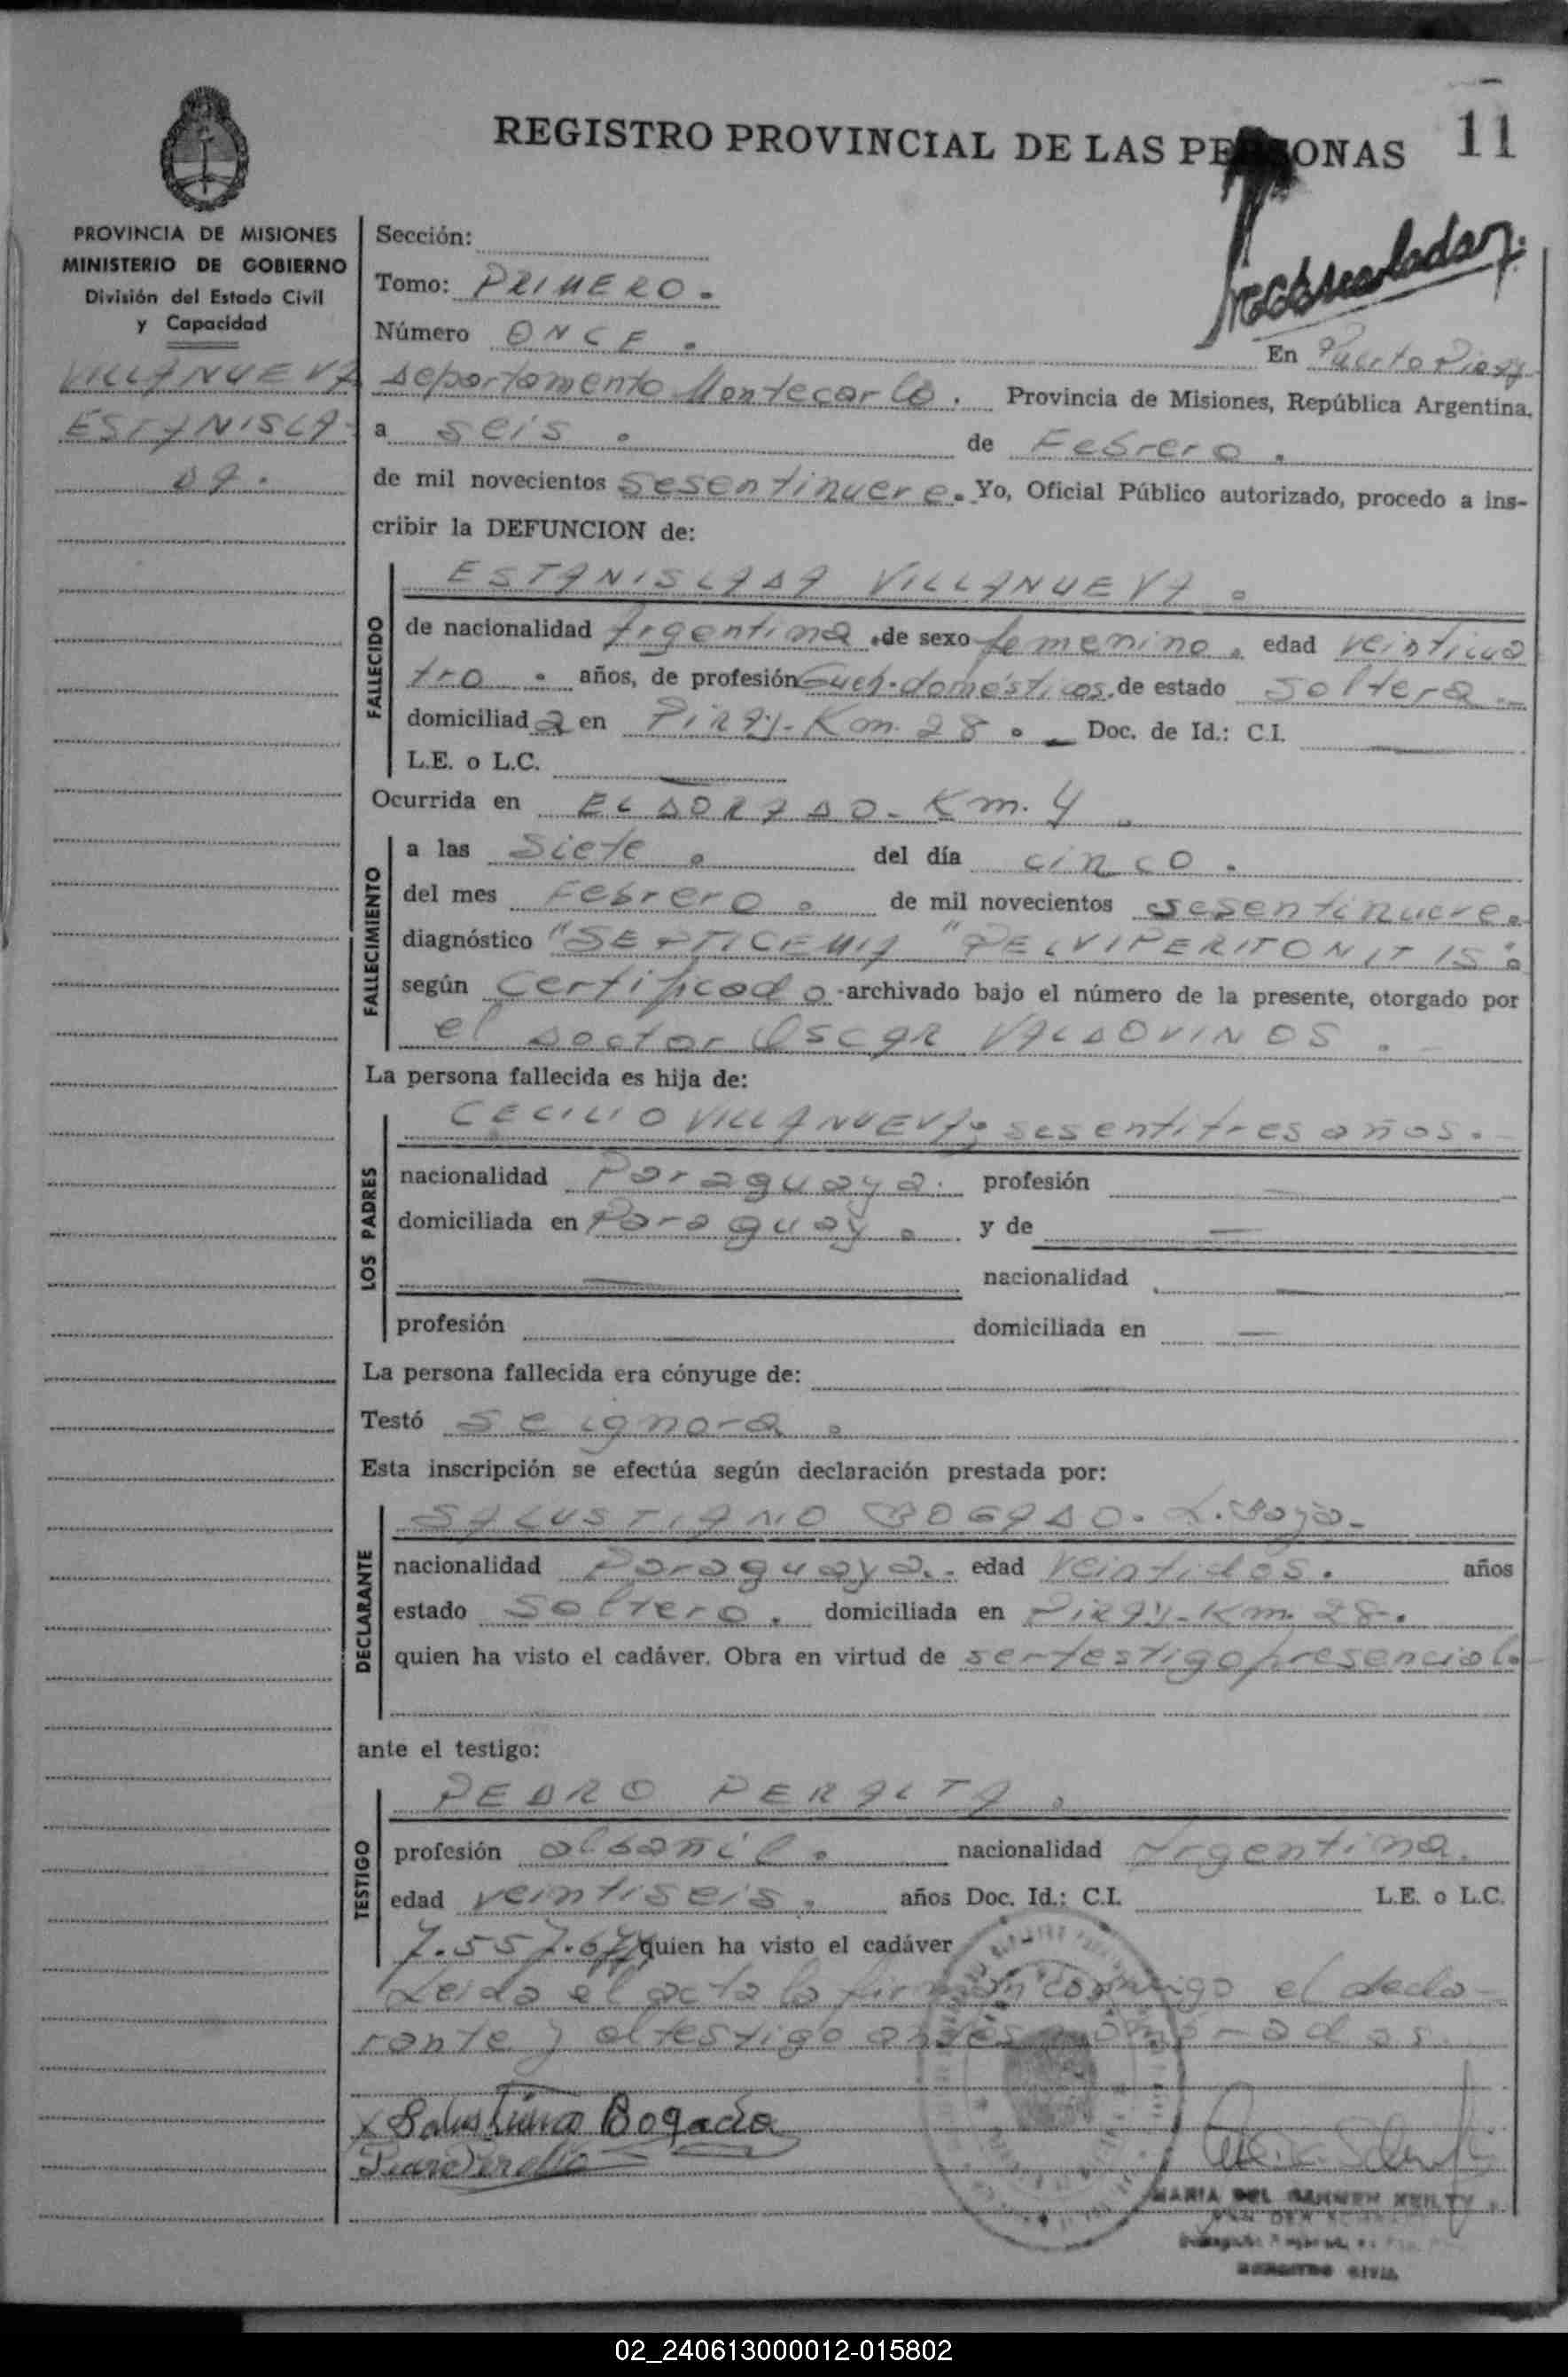 REGISTRO PROVINCIAL DE LAS PERSONAS 11
PROVINCIA DE MISIONES
MINISTERIO DE GOBIERNO
División del Estado Civil
y Capacidad
VILLANUEVA
ESTANISLA-
DA.
Sección:
Tomo: PRIMERO.
Número ONCE.
En Puerto Piray
Departamento Montecarlo. Provincia de Misiones, República Argentina,
a seis. de Febrero.
de mil novecientos sesentinueve. Yo, Oficial Público autorizado, procedo a ins-
cribir la DEFUNCION de:
FALLECIDO
ESTANISLADA VILLANUEVA.
de nacionalidad Argentina, de sexo femenino. edad veinticua
tro. años, de profesión Queh. domésticos. de estado soltera.
domiciliada en PIRAY-Km. 28. Doc. de Id.: C.I.
L.E. o L.C.
Ocurrida en ELDORADO-Km. 4.
FALLECIMIENTO
a las Siete. del día cinco.
del mes Febrero. de mil novecientos sesentinueve.
diagnóstico "SEPTICEMIA" PELVIPERITONITIS.
según Certificado archivado bajo el número de la presente, otorgado por
el Doctor Oscar VALDOVINOS.
La persona fallecida es hija de:
LOS PADRES
CECILIO VILLANUEVA; sesentitres años.
nacionalidad Paraguaya. profesión —
domiciliada en Paraguay. y de —
— nacionalidad —
profesión — domiciliada en —
La persona fallecida era cónyuge de:
Testó se ignora.
Esta inscripción se efectúa según declaración prestada por:
DECLARANTE
SALUSTIANO BOGADO.
nacionalidad Paraguaya. edad veintidos. años
estado soltero. domiciliada en PIRAY-Km. 28.
quien ha visto el cadáver. Obra en virtud de ser testigo presencial.
ante el testigo:
TESTIGO
PEDRO PERALTA.
profesión albañil. nacionalidad Argentina.
edad veintiseis. años Doc. Id.: C.I. L.E. o L.C.
quien ha visto el cadáver
Leida el acta la firman conmigo el decla-
rante y el testigo antes nombrados.
x Salustiano Bogado
Pedro Peralta
MARIA DEL CARMEN
REGISTRO CIVIL
02_240613000012-015802